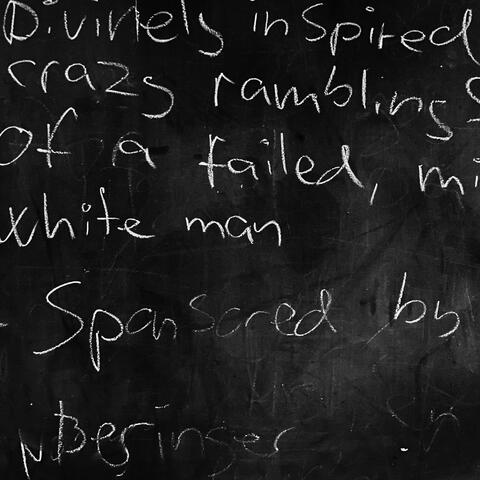 Divinely inspired
crazy ramblings
of a failed, mi
white man
- Sponsored by
Beringer